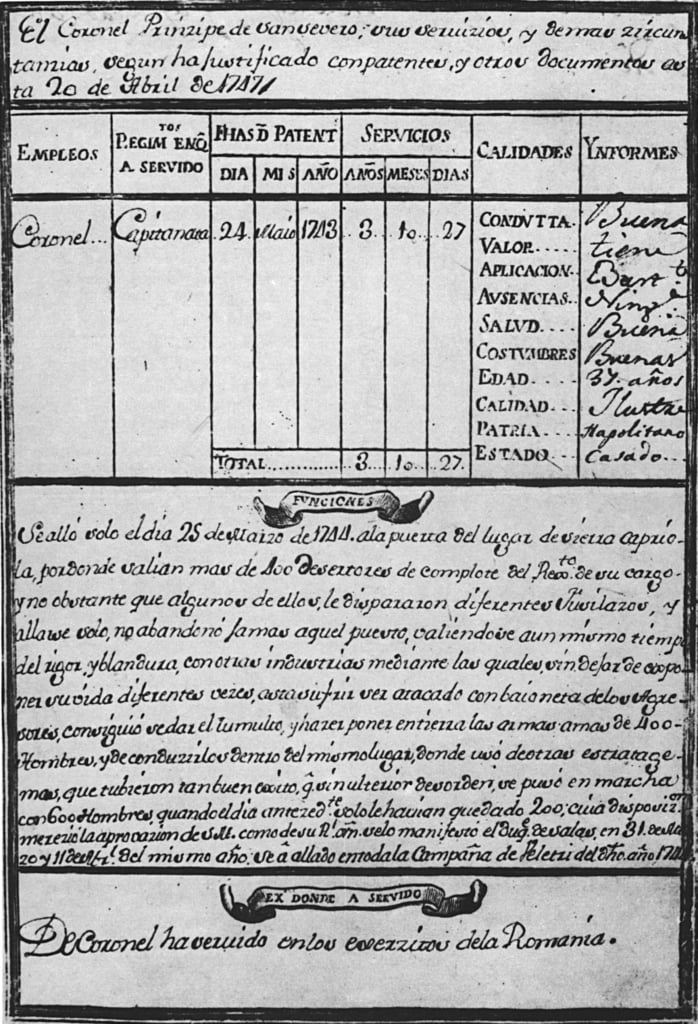 El Coronel Prinzipe de sansevero; sus servizios, y demas zircuns
tamzias, segun ha Justificado conpatentes, y otros documentos as
ta 20 de Abril de 1747
EMPLEOS
REGIM.TOS ENQ. A SERVIDO
FHAS D PATENT
DIA MIS AÑO
SERVICIOS
AÑOS MESES DIAS
CALIDADES
YNFORMES
Coronel... Capitanata 24 Maio 1743 3. 10. 27
CONDVTTA. Buena
VALOR.... tiene
APLICACION. Bast.te
AVSENCIAS.. Ning.a
SALVD.... Buena
COSTVMBRES Buenas
EDAD.... 37. años
CALIDAD.... Ilustre
PATRIA.... Napolitano
ESTADO.... Casado...
TOTAL............. 3. 10. 27.
FUNCIONES
Se alló solo el dia 25 de Marzo de 1744. ala puerta del lugar de sierra Caprio-
la, pordonde salian mas de 400 Desertores de complote del Rex.to de su cargo
y no obstante que algunos de ellos, le dispararon diferentes Fusilazos, y
allarse solo, no abandonó Jamas aquel puesto, valiendose aun mismo tiempo
del rigor, y blandura, con otras industrias mediante las quales, sin dejar de expo-
ner su vida diferentes vezes, asta sufrir ser atacado con baioneta delos Agre-
sores, consiguió sedar el tumulto, y hazer poner entierra las armas amas de 400-
Hombres, y de conduzirlos dentro del mismo lugar, donde usó deotras estratage-
mas, que tubieron tan buen exito, q. sin ulterior desorden, se pusó en marcha
con 600 Hombres, quando el dia anteced.te solo le havian quedado 200; cuia disposiz.on
merezió la aprovazion de S.M. como de su R.l orn. se lo manifestó el Duq.e de salas, en 31. de Mar
zo y 11 de Ap.l del mismo año; se á allado en toda la Campaña de Veletri del dho. año 1744
EX.TOS DONDE A SERVIDO
De Coronel ha servido en los exerzitos de la Romania.